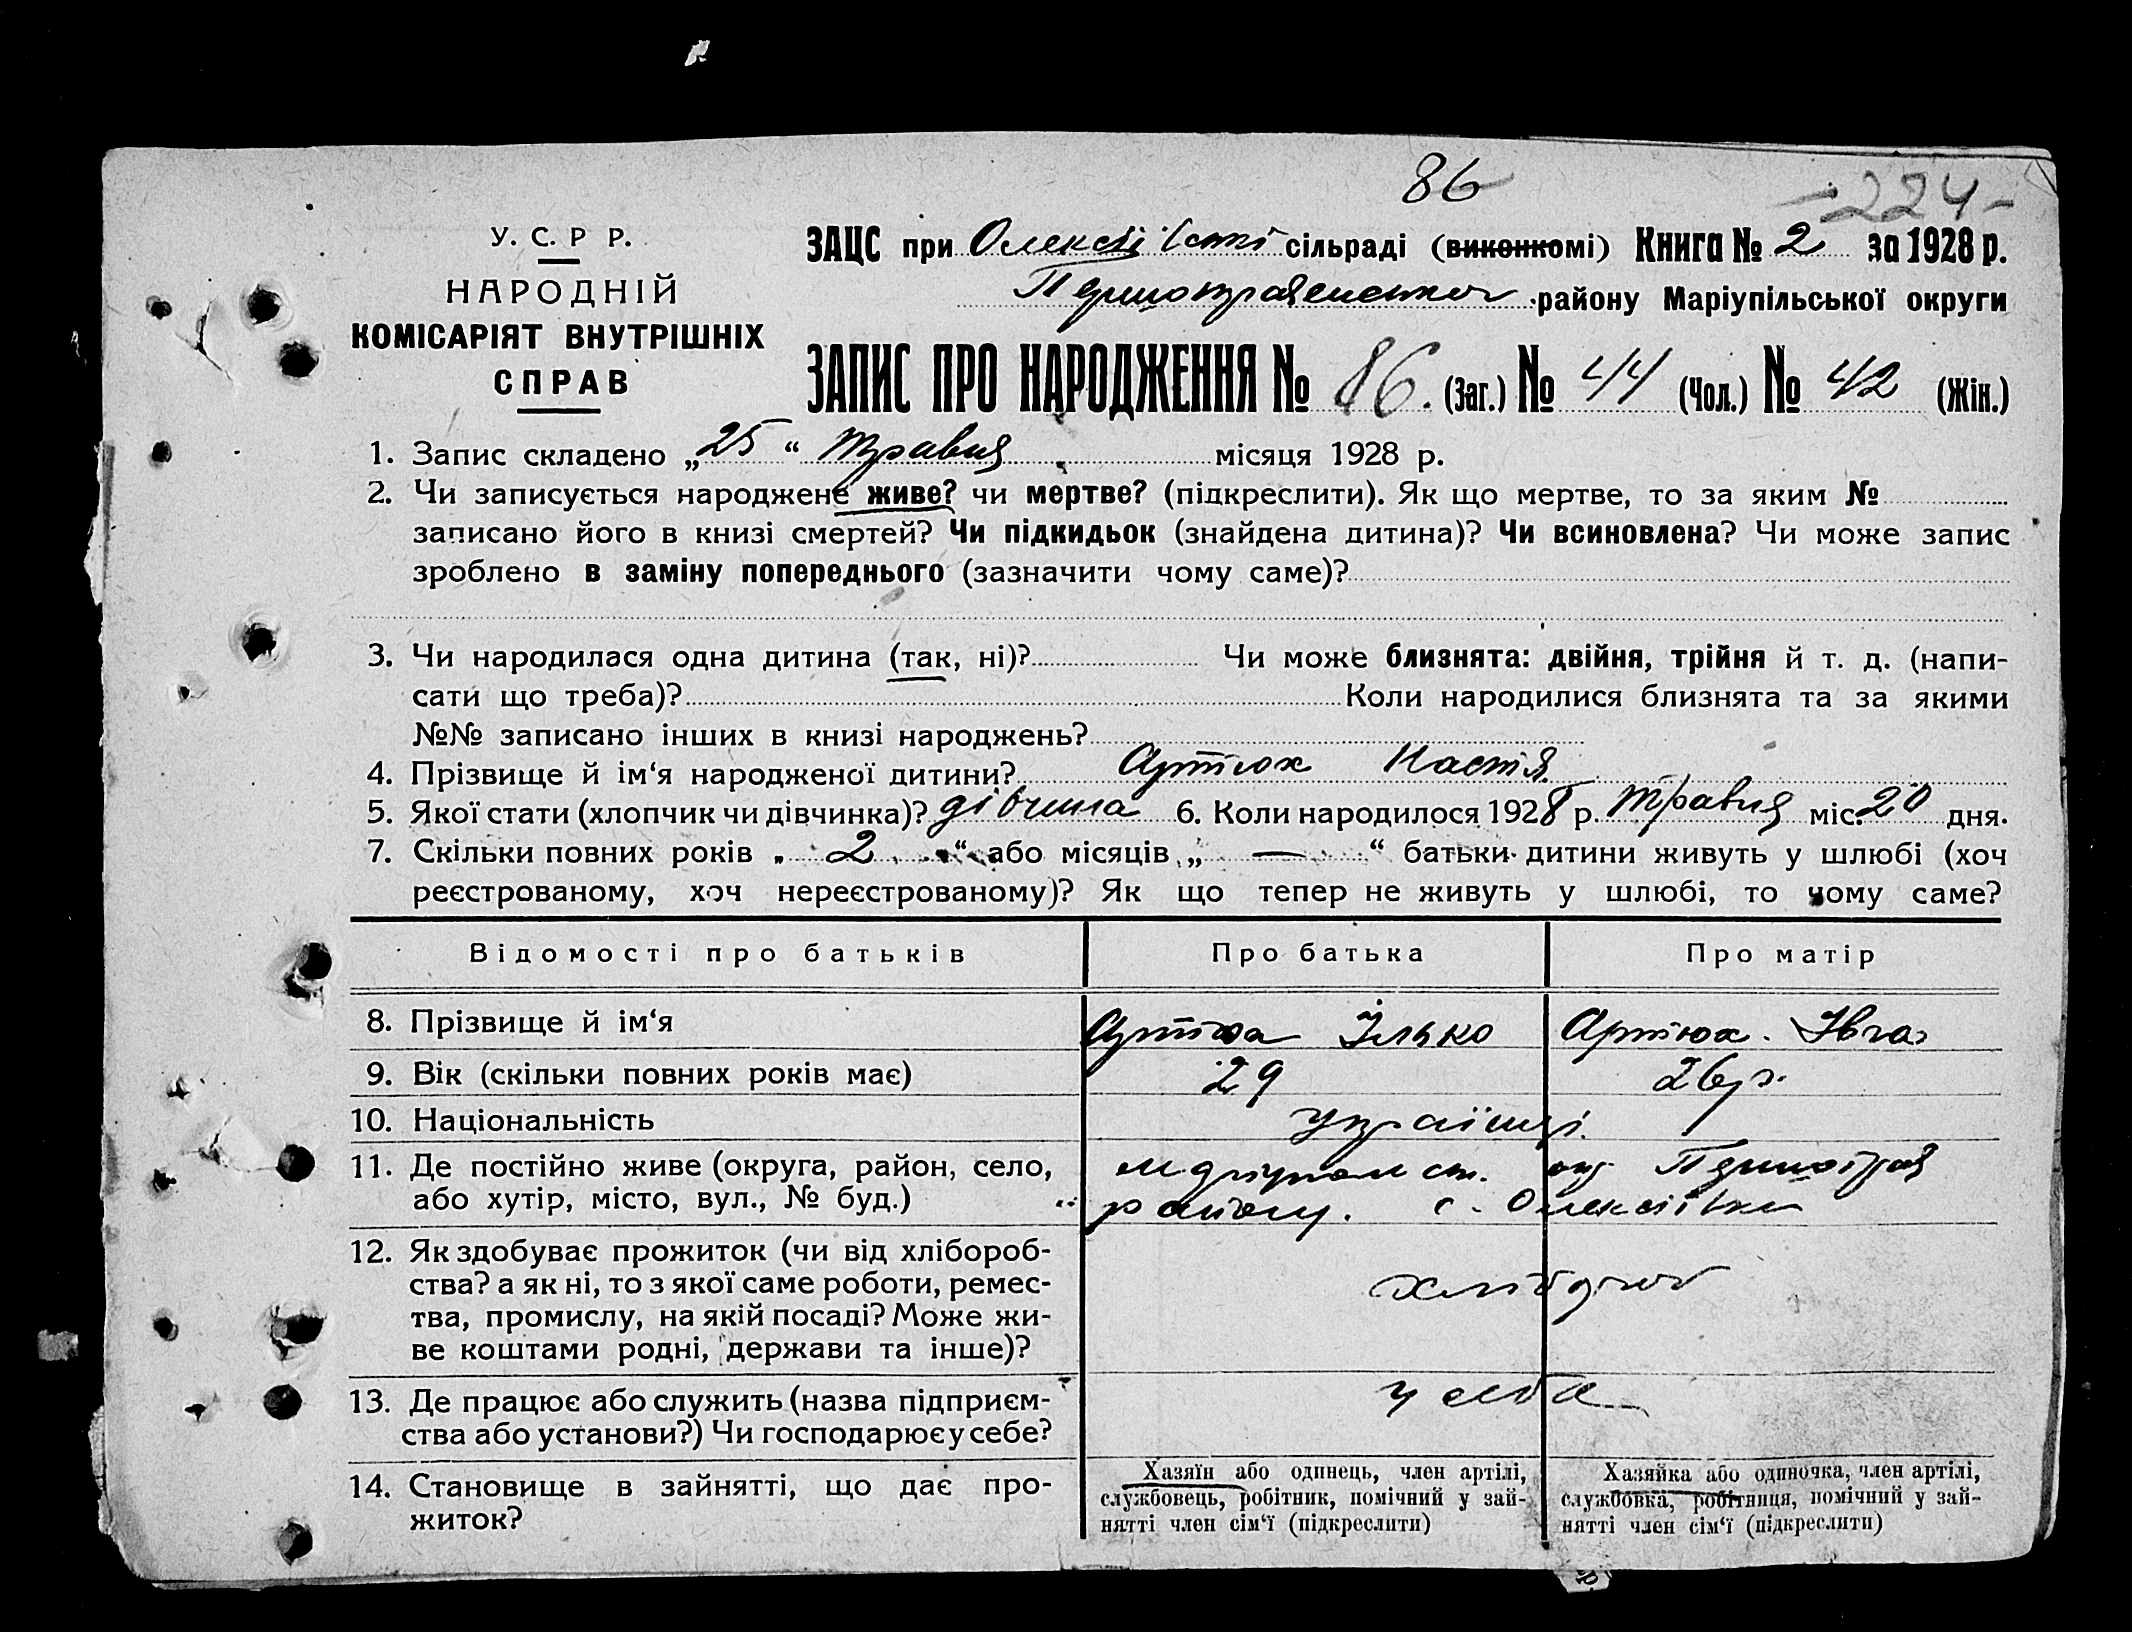 86
-224-
У. С. Р Р.
НАРОДНІЙ
КОМІСАРІЯТ ВНУТРІШНІХ
СПРАВ
ЗАЦС при Олексіївській сільраді (виконкомі) Книга № 2 за 1928 р.
району Маріупільської округи
ЗАПИС ПРО НАРОДЖЕННЯ № 86. (Заг.) № 44 (Чол.) № 42 (Жін.)
1. Запис складено „25“ Травня місяця 1928 р.
2. Чи записується народжене живе? чи мертве? (підкреслити). Як що мертве, то за яким №
записано його в книзі смертей? Чи підкидьок (знайдена дитина)? Чи всиновлена? Чи може запис
зроблено в заміну попереднього (зазначити чому саме)?
3. Чи народилася одна дитина (так, ні)? Чи може близнята: двійня, трійня й т. д. (напи-
сати що треба)? Коли народилися близнята та за якими
№№ записано інших в книзі народжень?
4. Прізвище й ім‘я народженої дитини? Артюх Настя
5. Якої стати (хлопчик чи дівчинка)? дівчина 6. Коли народилося 1928 р. Травня міс. 20 дня.
7. Скільки повних років „ 2 “ або місяців „ — “ батьки дитини живуть у шлюбі (хоч
реєстрованому, хоч нереєстрованому)? Як що тепер не живуть у шлюбі, то чому саме?
Відомості про батьків Про батька Про матір
8. Прізвище й ім‘я Артюх Ілько Артюх. Івга
9. Вік (скільки повних років має) 29 26 р.
10. Національність українці.
11. Де постійно живе (округа, район, село, окр. Першотрав
або хутір, місто, вул., № буд.) району. с. Олексіївка
12. Як здобуває прожиток (чи від хлібороб-
ства? а як ні, то з якої саме роботи, ремес-
тва, промислу, на якій посаді? Може жи-
ве коштами родні, держави та інше)?
13. Де працює або служить (назва підприєм-
ства або установи?) Чи господарює у себе? у себе
14. Становище в зайнятті, що дає про-
житок?
Хазяїн або одинець, член артілі,
службовець, робітник, помічний у зай-
нятті член сім‘ї (підкреслити)
Хазяйка або одиночка, член артілі,
службовка, робітниця, помічний у зай-
нятті член сім‘ї (підкреслити)